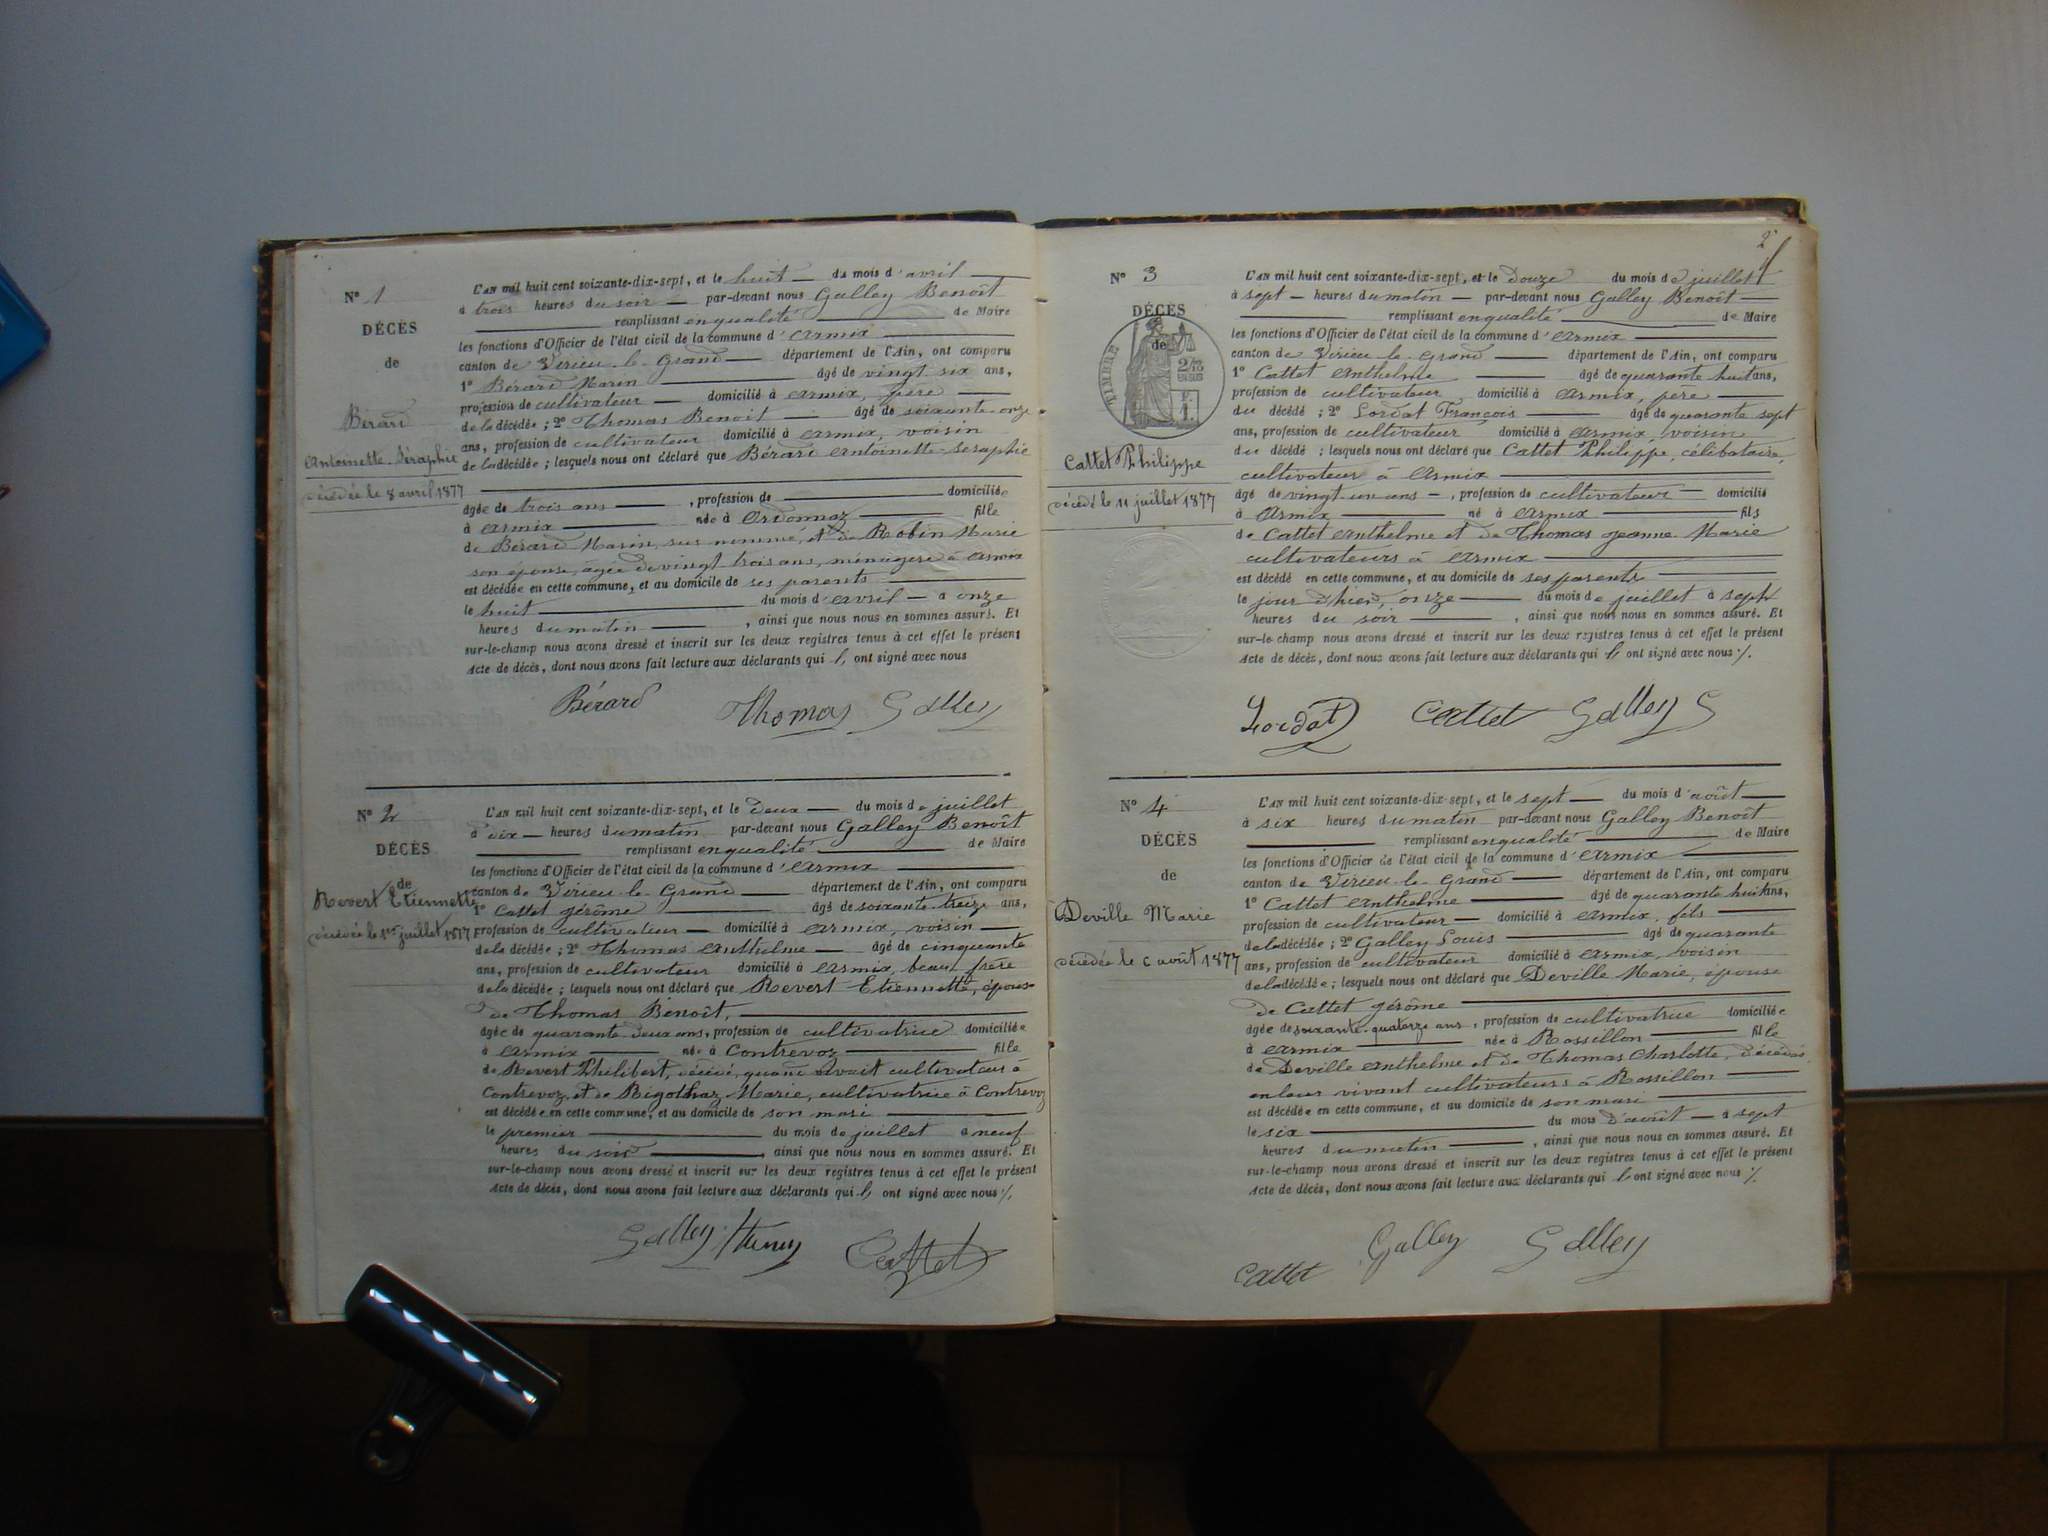 N° 1
DÉCÈS
de
Bérard
Antoinette-Séraphie
décédée le 8 avril 1877
L'AN mil huit cent soixante-dix-sept, et le huit du mois d'avril
à trois heures du soir par-devant nous Galley Benoît
remplissant en qualité de Maire
les fonctions d'Officier de l'état civil de la commune d'Armix
canton de Virieu-le-Grand département de l'Ain, ont comparu
1° Bérard Marin âgé de vingt six ans,
profession de cultivateur domicilié à Armix, père
de la décédée ; 2° Thomas Benoit âgé de soixante-onze
ans, profession de cultivateur domicilié à Armix, voisin
de la décédée ; lesquels nous ont déclaré que Bérard Antoinette-Seraphie
âgée de trois ans , profession de domiciliée
à Armix née à Ordonnaz fille
de Bérard Marin, sus nommé, et de Robin Marie
son épouse, âgée de vingt trois ans, ménagère à Armix
est décédée en cette commune, et au domicile de ses parents
le huit du mois d'avril à onze
heures du matin , ainsi que nous nous en sommes assuré. Et
sur-le-champ nous avons dressé et inscrit sur les deux registres tenus à cet effet le présent
Acte de décès, dont nous avons fait lecture aux déclarants qui ont signé avec nous
Bérard Thomas Galley
N° 2
DÉCÈS
de
Revert Etiennette
décédée le 1er juillet 1877
L'AN mil huit cent soixante-dix-sept, et le Deux du mois de juillet
à dix heures du matin par-devant nous Galley Benoît
remplissant en qualité de Maire
les fonctions d'Officier de l'état civil de la commune d'Armix
canton de Virieu-le-Grand département de l'Ain, ont comparu
1° Cattet Jérôme âgé de soixante-treize ans,
profession de cultivateur domicilié à Armix, voisin
de la décédée ; 2° Thomas Anthelme âgé de cinquante
ans, profession de cultivateur domicilié à Armix, beau frère
de la décédée ; lesquels nous ont déclaré que Revert Etiennette, épouse
de Thomas Benoît,
âgée de quarante-deux ans, profession de cultivatrice domiciliée
à Armix née à Contrevoz fille
de Revert Philibert, décédé, quand vivait cultivateur à
Contrevoz, et de Bigothaz Marie, cultivatrice à Contrevoz
est décédée en cette commune, et au domicile de son mari
le premier du mois de juillet à neuf
heures du soir , ainsi que nous nous en sommes assuré. Et
sur-le-champ nous avons dressé et inscrit sur les deux registres tenus à cet effet le présent
Acte de décès, dont nous avons fait lecture aux déclarants qui ont signé avec nous ./.
Galley Cattet
2
N° 3
DÉCÈS
de
TIMBRE
2/10
EN SUS
Cattet Philippe
décédé le 11 juillet 1877
L'AN mil huit cent soixante-dix-sept, et le Douze du mois de juillet
à sept heures du matin par-devant nous Galley Benoît
remplissant en qualité de Maire
les fonctions d'Officier de l'état civil de la commune d'Armix
canton de Virieu-le-Grand département de l'Ain, ont comparu
1° Cattet Anthelme âgé de quarante huit ans,
profession de cultivateur domicilié à Armix, père
du décédé ; 2° Lordat François âgé de quarante sept
ans, profession de cultivateur domicilié à Armix, voisin
du décédé ; lesquels nous ont déclaré que Cattet Philippe, célibataire,
cultivateur à Armix
âgé de vingt-un ans , profession de cultivateur domicilié
à Armix né à Armix fils
de Cattet Anthelme et de Thomas Jeanne-Marie
cultivateurs à Armix
est décédé en cette commune, et au domicile de ses parents
le jour d'hier, onze du mois de juillet à sept
heures du soir , ainsi que nous nous en sommes assuré. Et
sur-le-champ nous avons dressé et inscrit sur les deux registres tenus à cet effet le présent
Acte de décès, dont nous avons fait lecture aux déclarants qui ont signé avec nous ./.
Lordat Cattet Galley
N° 4
DÉCÈS
de
Deville Marie
décédée le 6 août 1877
L'AN mil huit cent soixante-dix-sept, et le sept du mois d'août
à six heures du matin par-devant nous Galley Benoît
remplissant en qualité de Maire
les fonctions d'Officier de l'état civil de la commune d'Armix
canton de Virieu-le-Grand département de l'Ain, ont comparu
1° Cattet Anthelme âgé de quarante huit ans,
profession de cultivateur domicilié à Armix, fils
de la décédée ; 2° Galley Louis âgé de quarante
ans, profession de cultivateur domicilié à Armix, voisin
de la décédée ; lesquels nous ont déclaré que Deville Marie, épouse
de Cattet Jérôme
âgée de soixante-quatorze ans , profession de cultivatrice domiciliée
à Armix née à Rossillon fille
de Deville Anthelme et de Thomas Charlotte, décédés
en leur vivant cultivateurs à Rossillon
est décédée en cette commune, et au domicile de son mari
le six du mois d'août à sept
heures du matin , ainsi que nous nous en sommes assuré. Et
sur-le-champ nous avons dressé et inscrit sur les deux registres tenus à cet effet le présent
Acte de décès, dont nous avons fait lecture aux déclarants qui ont signé avec nous ./.
Cattet Galley Galley